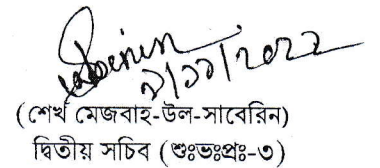 ২/১১/২০২২
(শেখ মেজবাহ-উল-সাবেরিন)
দ্বিতীয় সচিব (শুঃভঃপ্রঃ-৩)